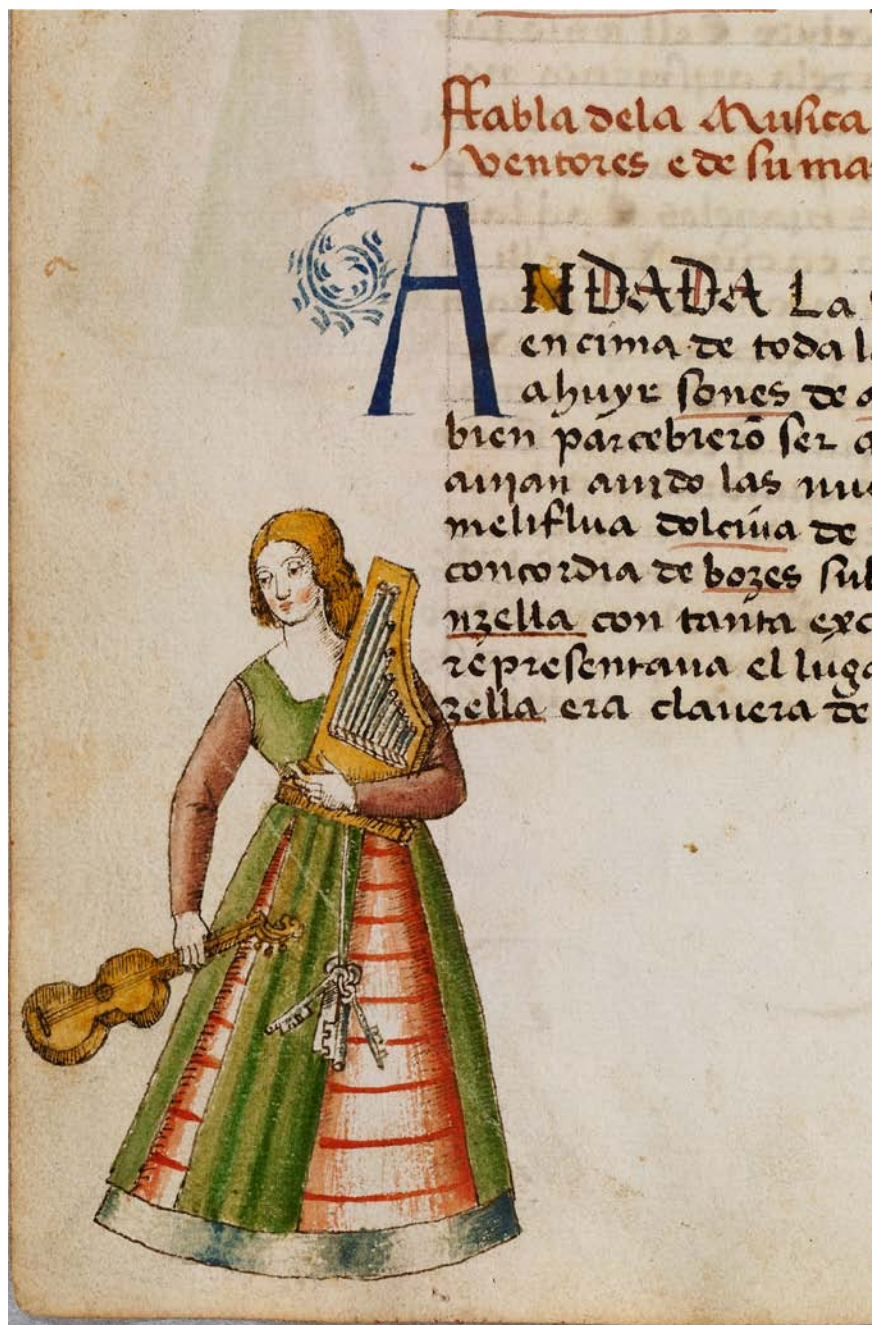 Ffabla dela Musica
ventores e de su ma
ANDADA La
encima de toda la
ahuyr sones de
bien parcebierō ser a
auian auido las nu
meliflua dolçura de
concordia de bozes sub
nzella con tanta exc
representaua el luga
zella era clauera de